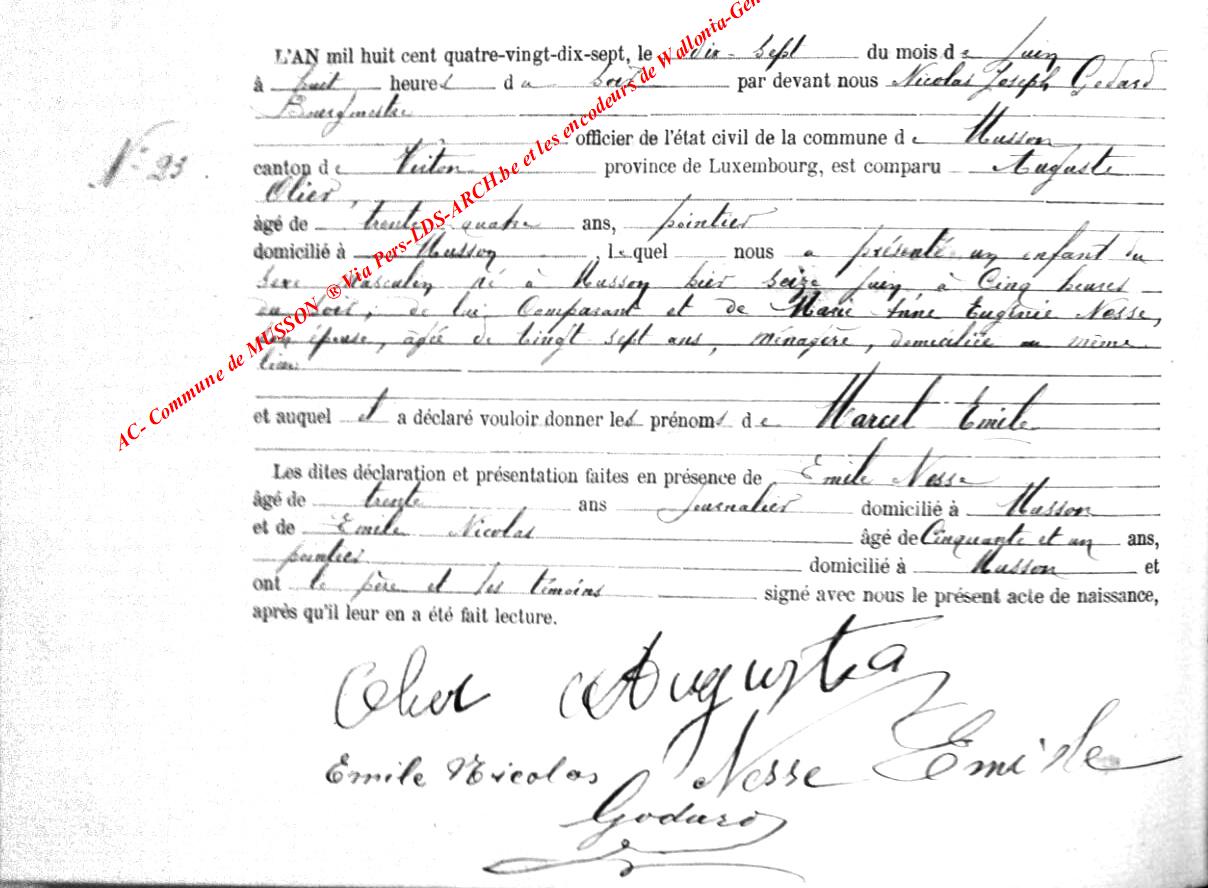 L'AN mil huit cent quatre-vingt-dix-sept, le dix-sept du mois de Juin
à huit heures du soir par devant nous Nicolas Joseph Godard
Bourgmestre
officier de l'état civil de la commune de Musson
N° 23
canton de Virton province de Luxembourg, est comparu Auguste
Olier,
âgé de trente quatre ans, pointier
domicilié à Musson, lequel nous a présenté un enfant du
sexe masculin né à Musson hier seize Juin à Cinq heures
du soir, de lui Comparant et de Marie Anne Eugénie Nesse,
son épouse, agée de vingt sept ans, ménagère, domiciliée au même
lieu
et auquel il a déclaré vouloir donner les prénoms de Marcel Emile
Les dites déclaration et présentation faites en présence de Emile Nesse
âgé de trente ans Journalier domicilié à Musson
et de Emile Nicolas âgé de Cinquante et un ans,
pointier domicilié à Musson et
ont le père et les témoins signé avec nous le présent acte de naissance,
après qu'il leur en a été fait lecture.
Olier Auguste
Emile Nicolas Nesse Emile
Godard
AC- Commune de MUSSON ® Via Pers-LDS-ARCH.be et les encodeurs de Wallonia-Gen